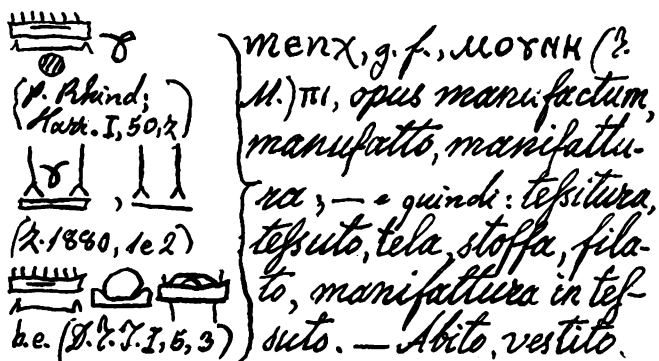 (P. Rhind;
Harr. I, 50, 7)
(Z. 1880, 1 e 2)
b.e. (D. T. I. I, 5, 3)
menχ, g. f., ⲙⲟⲩⲛⲕ (T.
M.) ⲡⲓ, opus manufactum,
manufatto, manifattu-
ra; — e quindi: teſsitura,
teſsuto, tela, stoffa, fila-
to, manifattura in teſ-
suto. — Abito, vestito.